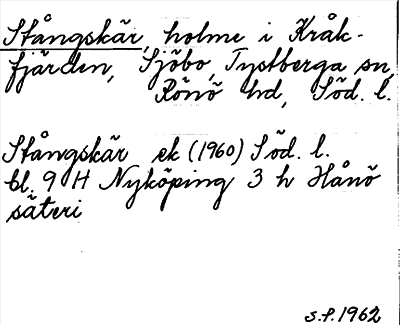 Stångskär, holme i Kråk-
fjärden, Sjöbo, Tystberga sn,
Rönö hd, Söd. l.
Stångskär ek (1960) Söd. l.
bl. 9 H Nyköping 3 h Hånö
säteri
s.f. 1962